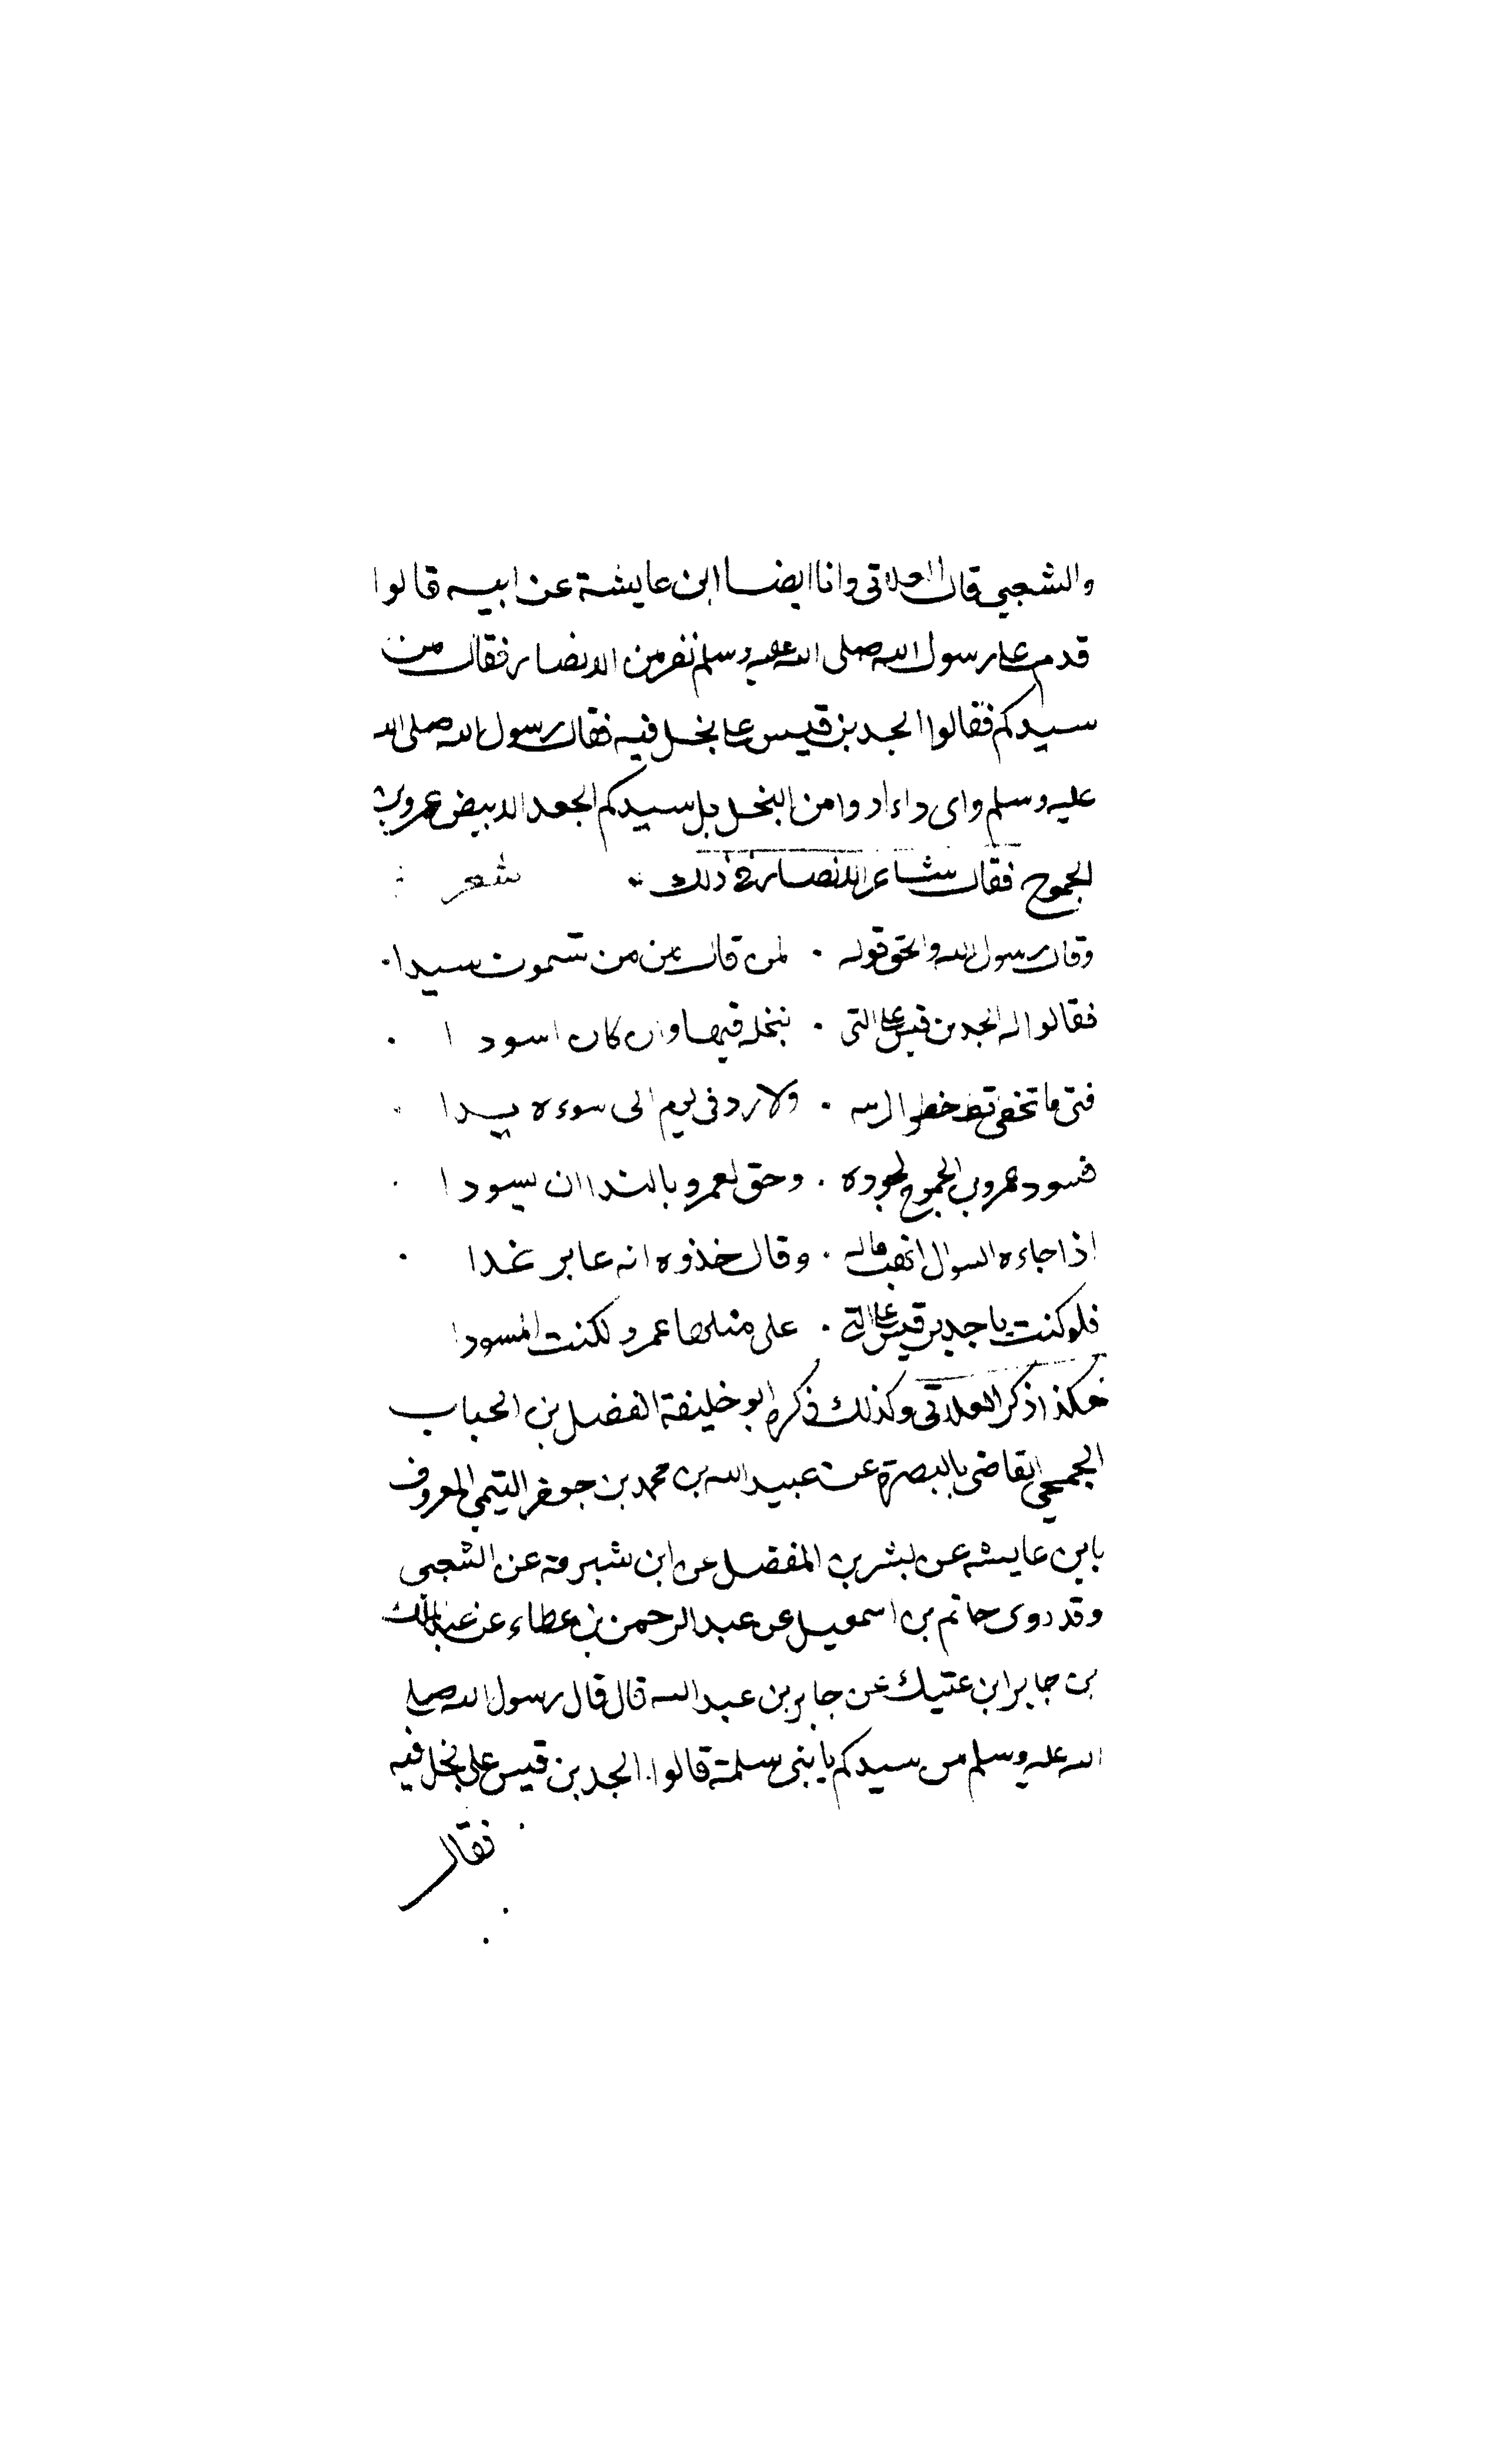 والشعبي قال العلاني وانا ايضا ابن عايشة عن ابيه قالوا
قدم على رسول الله صلى الله عليه وسلم نفر من الانصار فقال من
سيدكم فقالوا الجد بن قيس على بخل فيه فقال رسول الله صلى الله
عليه وسلم واى داء ادوا من البخل بل سيدكم الجعد الابيض عمرو بن
الجموح فقال شاعر الانصار في ذلك شعر
وقال رسول الله والحق قوله . لمن قال من من تسمون سيدا .
فقالوا له الجد بن قيس على التى . نبخله فيها وان كان اسودا .
فتى ما تخطى خطوة . ولا رد في يوم الى سوءه يدا
فسود عمرو بن الجموح لجوده . وحق لعمرو بالندا ان يسودا .
اذا جاءه السوال انهب ماله . وقال خذوه انه عايد غدا .
فلو كنت يا جد بن قيس على التى . على مثلها عمرو لكنت المسودا
هكذا ذكر العلاني وكذلك ذكره ابو خليفة الفضل بن الحباب
الجمحي القاضى بالبصرة عن عبيد الله بن محمد بن جعفر التيمي المعروف
بابن عايشه عن بشر بن المفضل عن ابن شبرمة عن الشعبى
وقد روى حاتم بن اسمعيل عن عبد الرحمن بن عطاء عن عبد الملك
بن جابر ابن عتيك عن جابر بن عبد الله قال قال رسول الله صلى
الله عليه وسلم من سيدكم يا بنى سلمة قالوا الجد بن قيس على بخل فيه
فقال